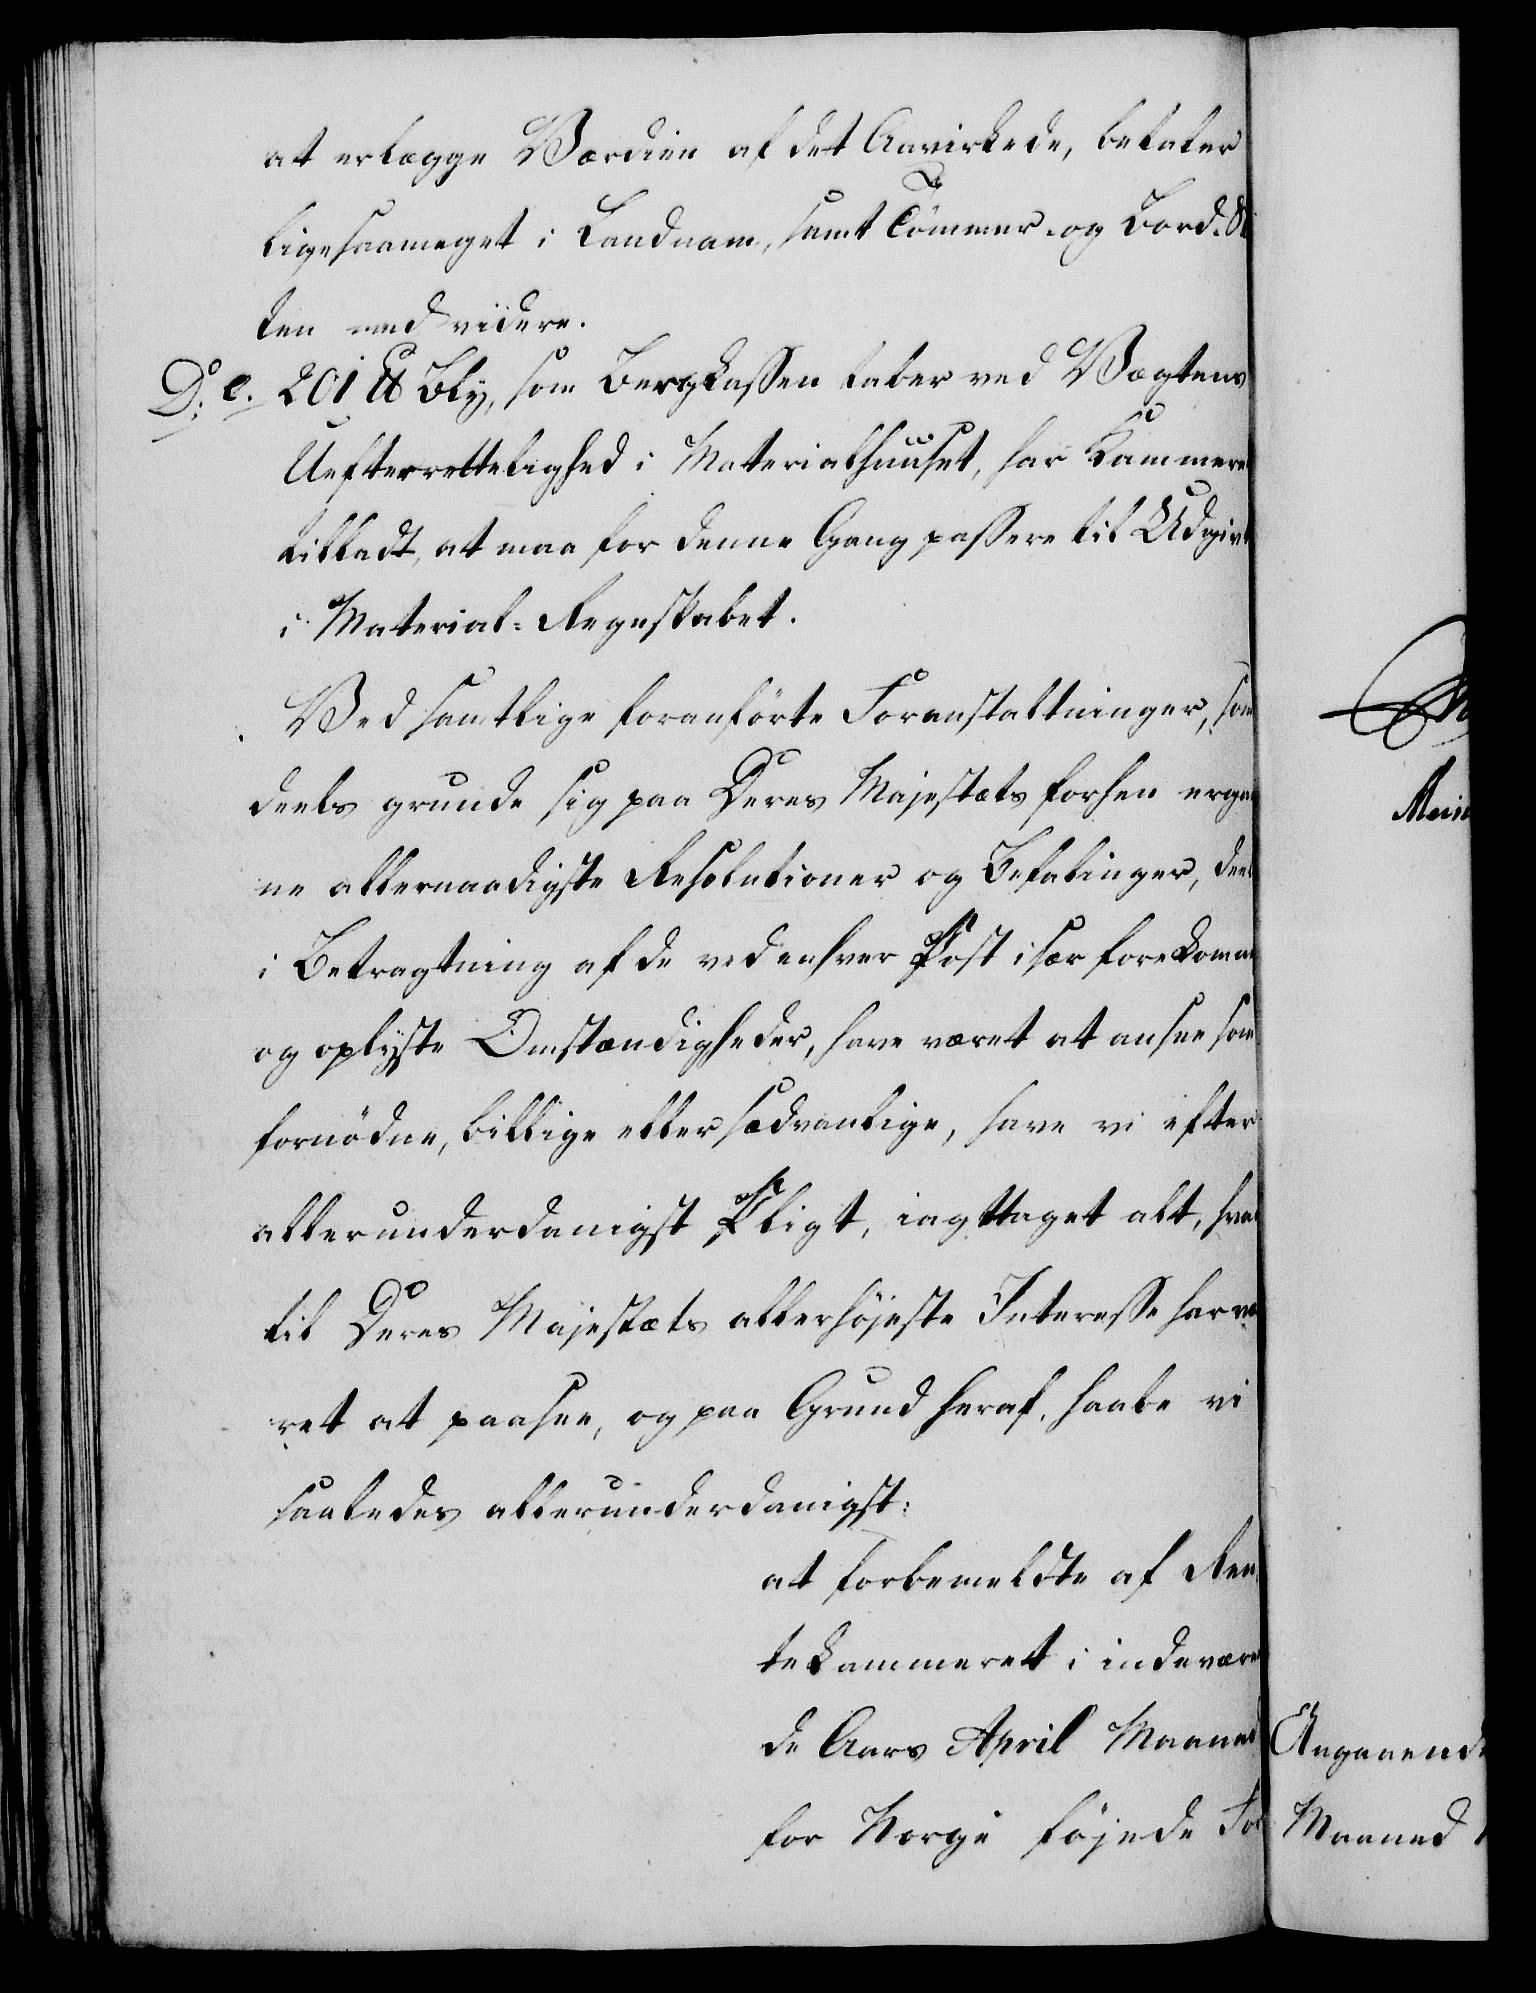 at erlægge Værdien af det Aavirkede, betaler
ligesaameget i Landnam, samt Tømmer- og Bord-
ten med videre.
D: e. 201 ℔ Bly, som Bergkassen taber ved Vægtens
Uefterrettelighed i Materialhuuset, har Kammeret
tilladt, at maa for denne Gang passere til Udgivt
i Material-Regnskabet.
Ved samtlige foranførte Foranstaltninger, som
deels grunde sig paa Deres Majestæts forhen ergan
ne allernaadigste Resolutioner og Befalinger, deels
i Betragtning af de ved enhver Post især forekomne
og oplyste Omstændigheder, have været at ansee som
fornødne, billige eller sædvanlige, have vi efter
allerunderdanigst Pligt, iagttaget alt, hvad
til Deres Majestæts allerhøjeste Interesse har væ
ret at paasee, og paa Grund heraf, haabe vi
saaledes allerunderdanigst:
at forbemeldte af Ren
tekammeret i indeværen
de Aars April Maaned
for Norge føjede For
Angaaende
Maaned